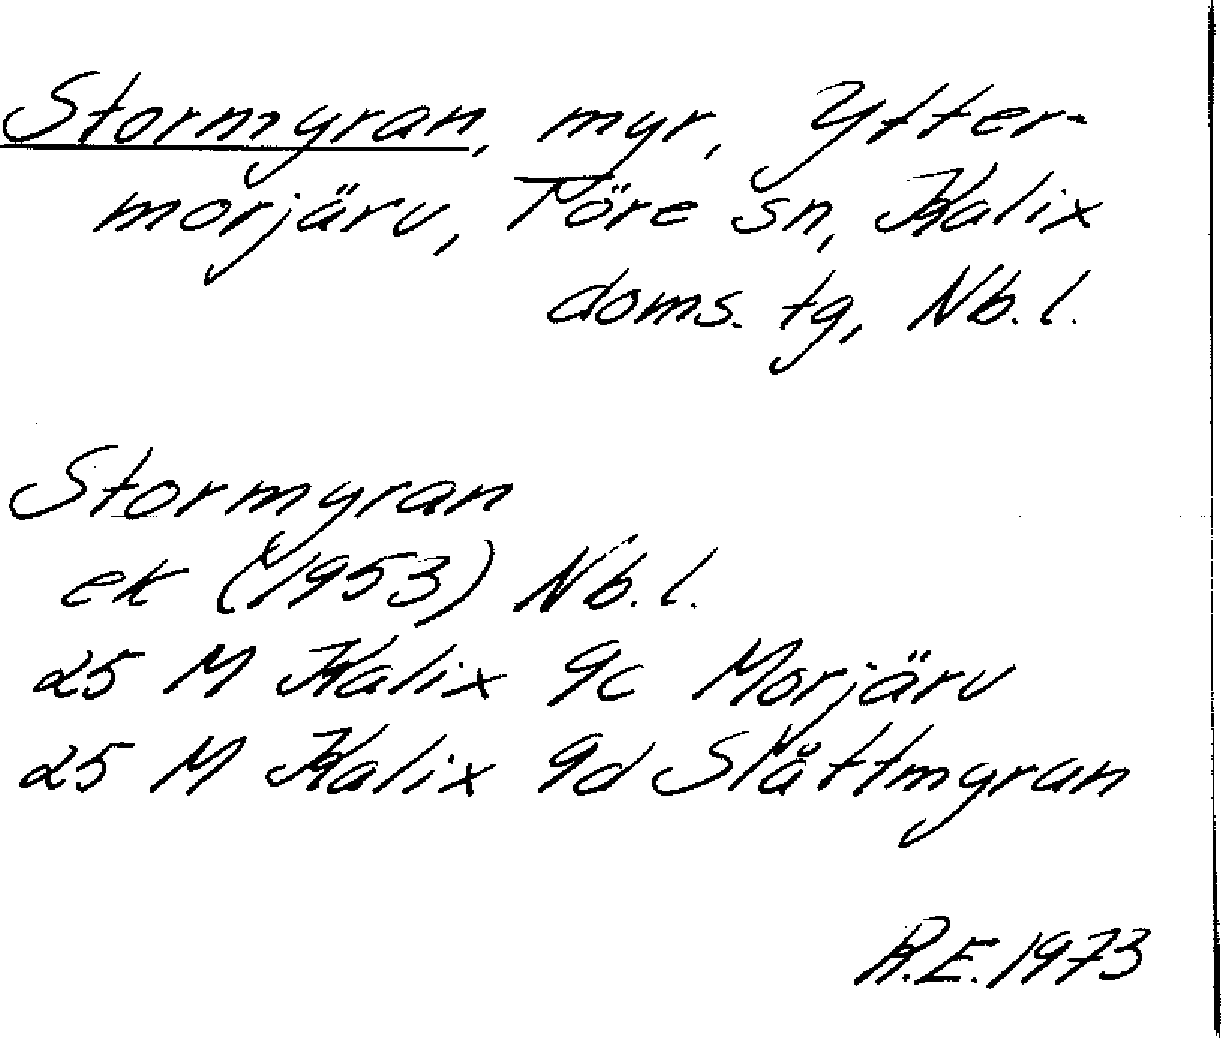 Stormyran, myr, Ytter-
morjärv, Töre sn, Kalix
doms. tg, Nb.l.
Stormyran
ek (1953) Nb.l.
25 M Kalix 9c Morjärv
25 M Kalix 9d Slåttmyran
R.E. 1973